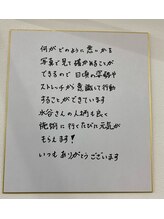 何がどのように悪いかを
写真で見て確かめることが
できるので 日頃の姿勢や
ストレッチが意識して行動
することができています
水谷さんの人柄も良く
施術に行くたびに元気が
もらえます!
いつもありがとうございます